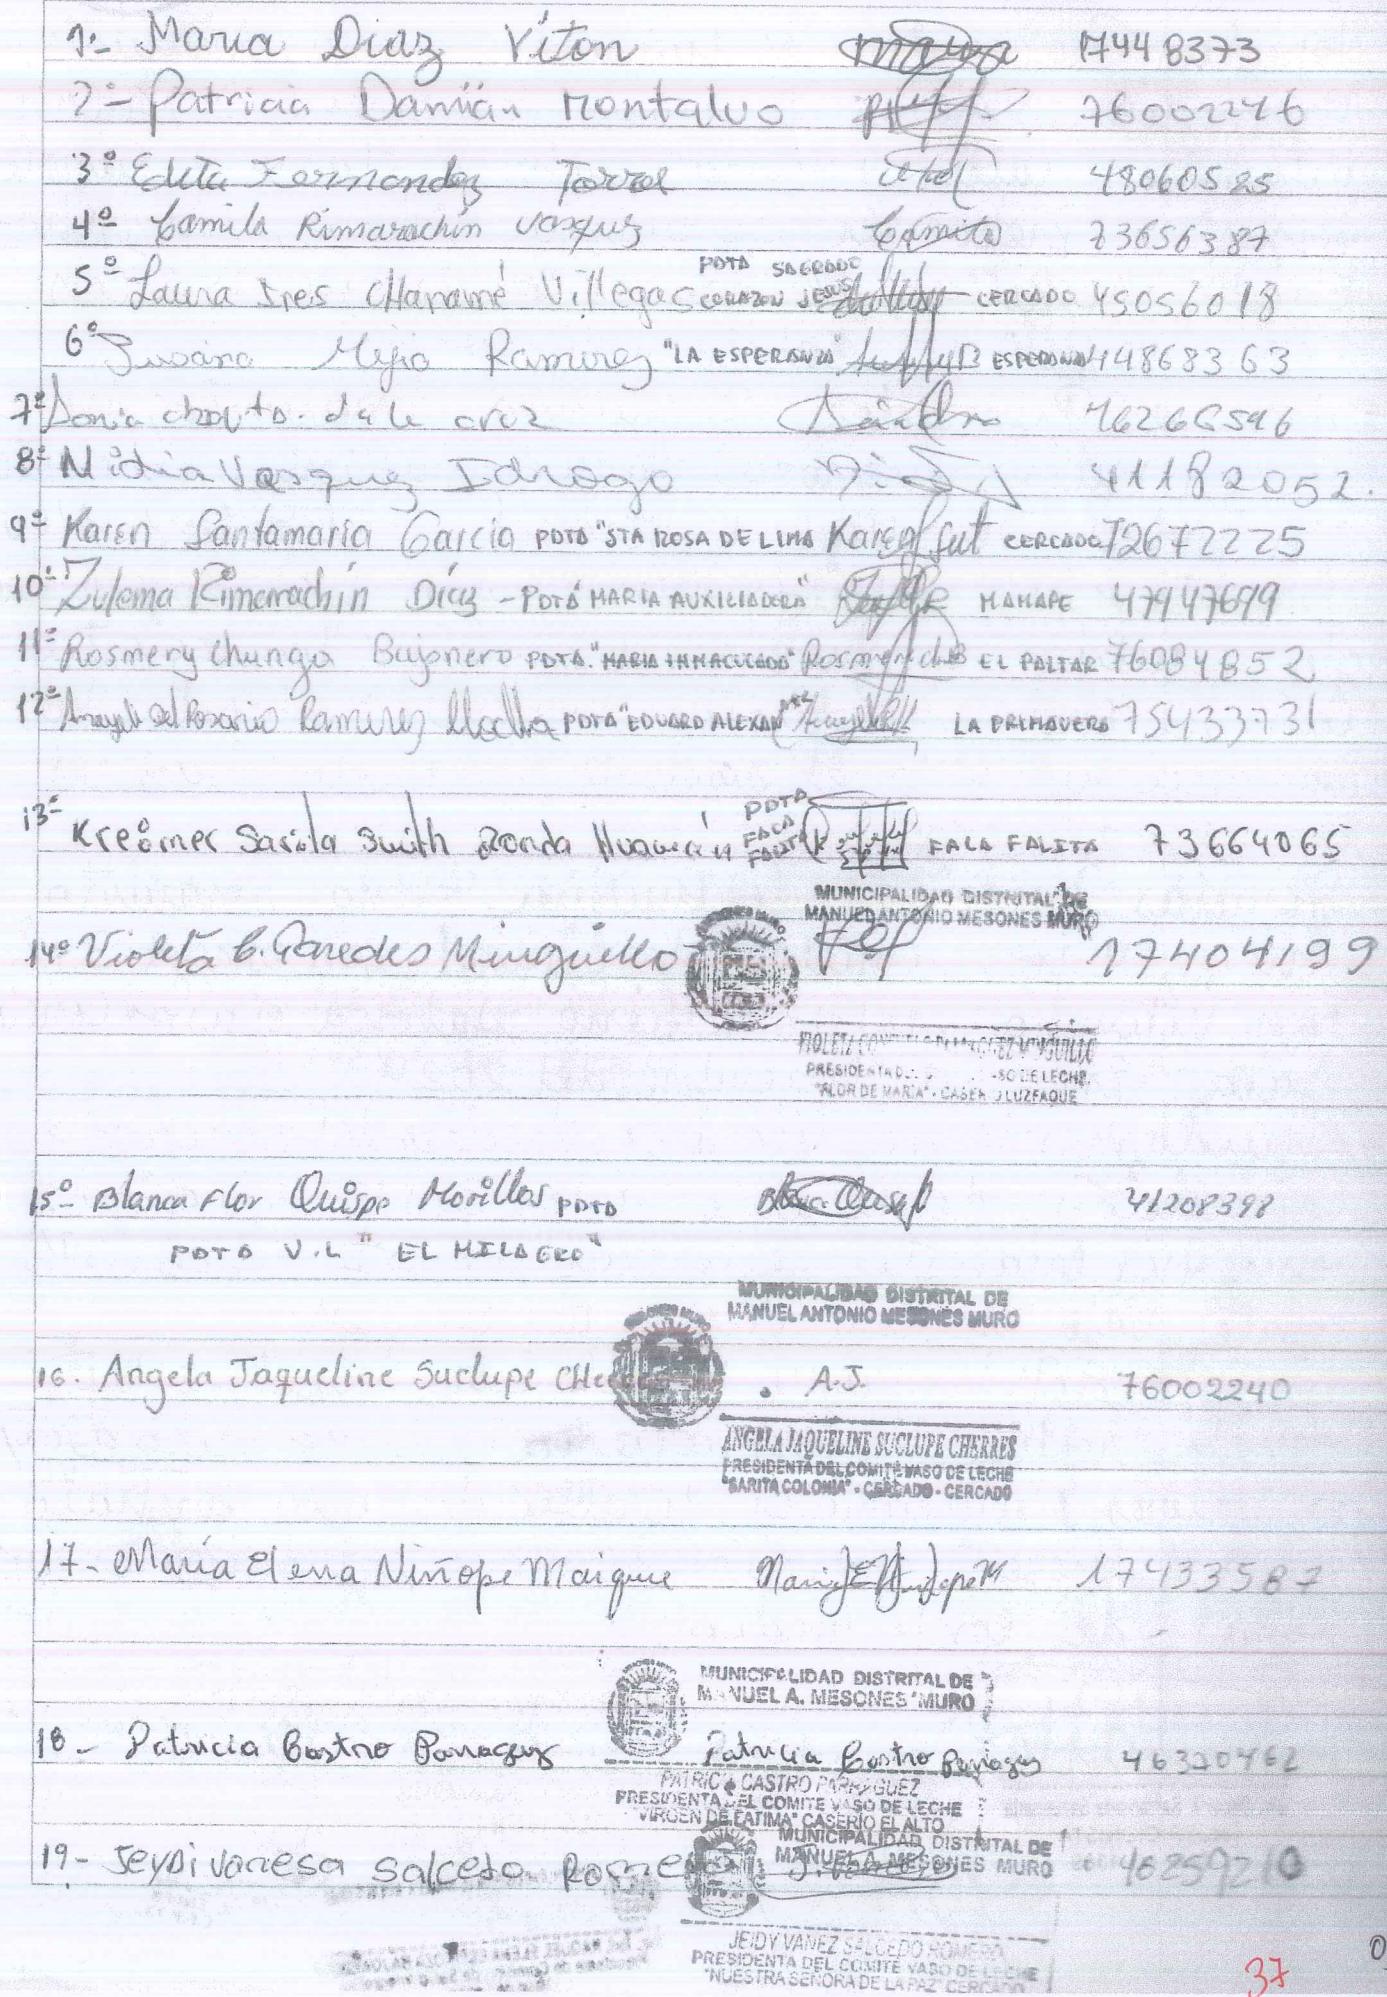 1.- Maria Diaz Viton 17448373
2.- Patricia Damián Montalvo 76002246
3º Edita Fernandez Torres 48060525
4º Camila Rimarachin Vasquez Camila 73656387
5º Laura Ines CHanamé Villegas PDTA SAGRADO CORAZON JESUS CERCADO 45056018
6º Susana Mejia Ramirez "LA ESPERANZA" ESPERANZA 44868363
7º Sonia de la cruz 76266596
8º Nidia Vasquez Idrogo 41182052.
9º Karen Santamaria Garcia PDTA "STA ROSA DE LIMA Karen CERCADO 72672225
10º Zulema Rimarachin Díaz - PDTA MARIA AUXILIADORA" MAMAPE 47947699
11º Rosmery Chunga Bujonero PDTA. "MARIA INMACULADA" EL PALTAR 76084852
12º Anayeli Del Rosario Ramirez PDTA "EDUARD ALEXAN LA PRIMAVERA 75433731
13º Kreömer Sarita Smith Zonda Huamán PDTA FALA FALITA FALA FALITA 73664065
MUNICIPALIDAD DISTRITAL DE
MANUEL ANTONIO MESONES MURO
14º Violeta C. Paredes Minguillo 17404199
VIOLETA MINGUILLO
PRESIDENTA VASO DE LECHE
"FLOR DE MARIA" - CASERIO LUZFAQUE
15º Blanca Flor Quispe Morillos PDTA 41208398
PDTA V.L "EL MILAGRO"
MUNICIPALIDAD DISTRITAL DE
MANUEL ANTONIO MESONES MURO
16. Angela Jaqueline Suclupe CHe A.J. 76002240
ANGELA JAQUELINE SUCLUPE CHERRES
PRESIDENTA DEL COMITE VASO DE LECHE
"SARITA COLONIA" - CERCADO - CERCADO
17- María Elena Niñope Maique 17433587
MUNICIPALIDAD DISTRITAL DE
MANUEL A. MESONES MURO
18- Patricia Castro Parraguez Patricia Castro Parraguez 46320462
PATRICIA CASTRO PARRAGUEZ
PRESIDENTA DEL COMITE VASO DE LECHE
"VIRGEN DE FATIMA" CASERIO EL ALTO
MUNICIPALIDAD DISTRITAL DE
MANUEL A. MESONES MURO
19- Jeydi vanesa Salcedo Romero 46259210
JEIDY VANEZ SALCEDO ROMERO
PRESIDENTA DEL COMITE VASO DE LECHE
"NUESTRA SEÑORA DE LA PAZ" CERCADO
37